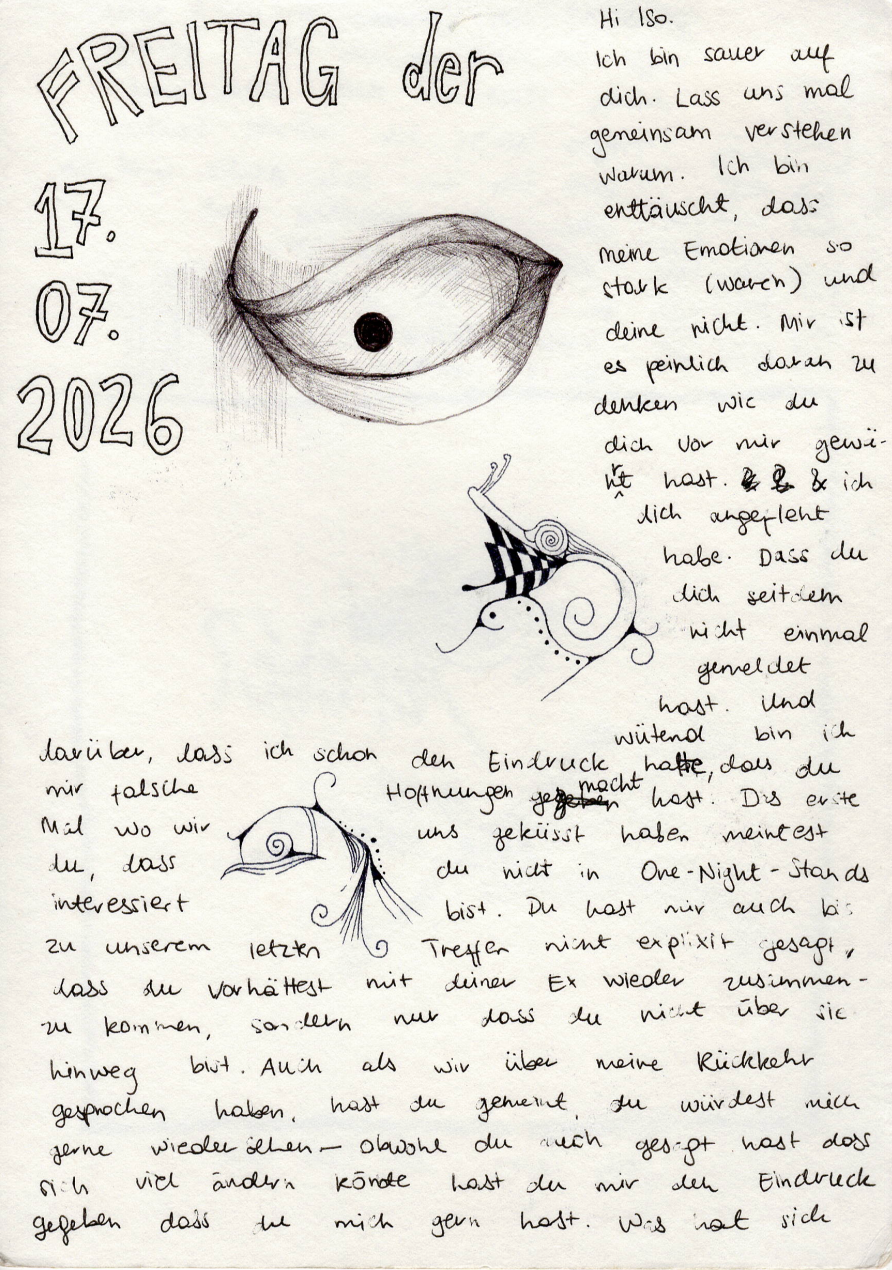 FREITAG der
17.
07.
2026
Hi Iso.
Ich bin sauer auf
dich. Lass uns mal
gemeinsam verstehen
warum. Ich bin
enttäuscht, dass
meine Emotionen so
stark (waren) und
deine nicht. Mir ist
es peinlich daran zu
denken wie du
dich vor mir gewü-
rt hast. ich
dich angefleht
habe. Dass du
dich seitdem
nicht einmal
gemeldet
hast. Und
wütend bin ich
darüber, dass ich schon den Eindruck hatte, dass du
mir falsche Hoffnungen gemacht hast. Das erste
Mal wo wir uns geküsst haben meintest
du, dass du nicht in One-Night-Stands
interessiert bist. Du hast mir auch bis
zu unserem letztn Treffen nicht explixit gesagt,
dass du vorhättest mit deiner Ex wieder zusammen-
zu kommen, sondern nur dass du nicht über sie
hinweg bist. Auch als wir über meine Rückkehr
gesprochen haben, hast du gemeint, du würdest mich
gerne wiedersehen – obwohl du auch gesagt hast dass
sich viel ändern könnte hast du mir den Eindruck
gegeben dass du mich gern hast. Was hat sich